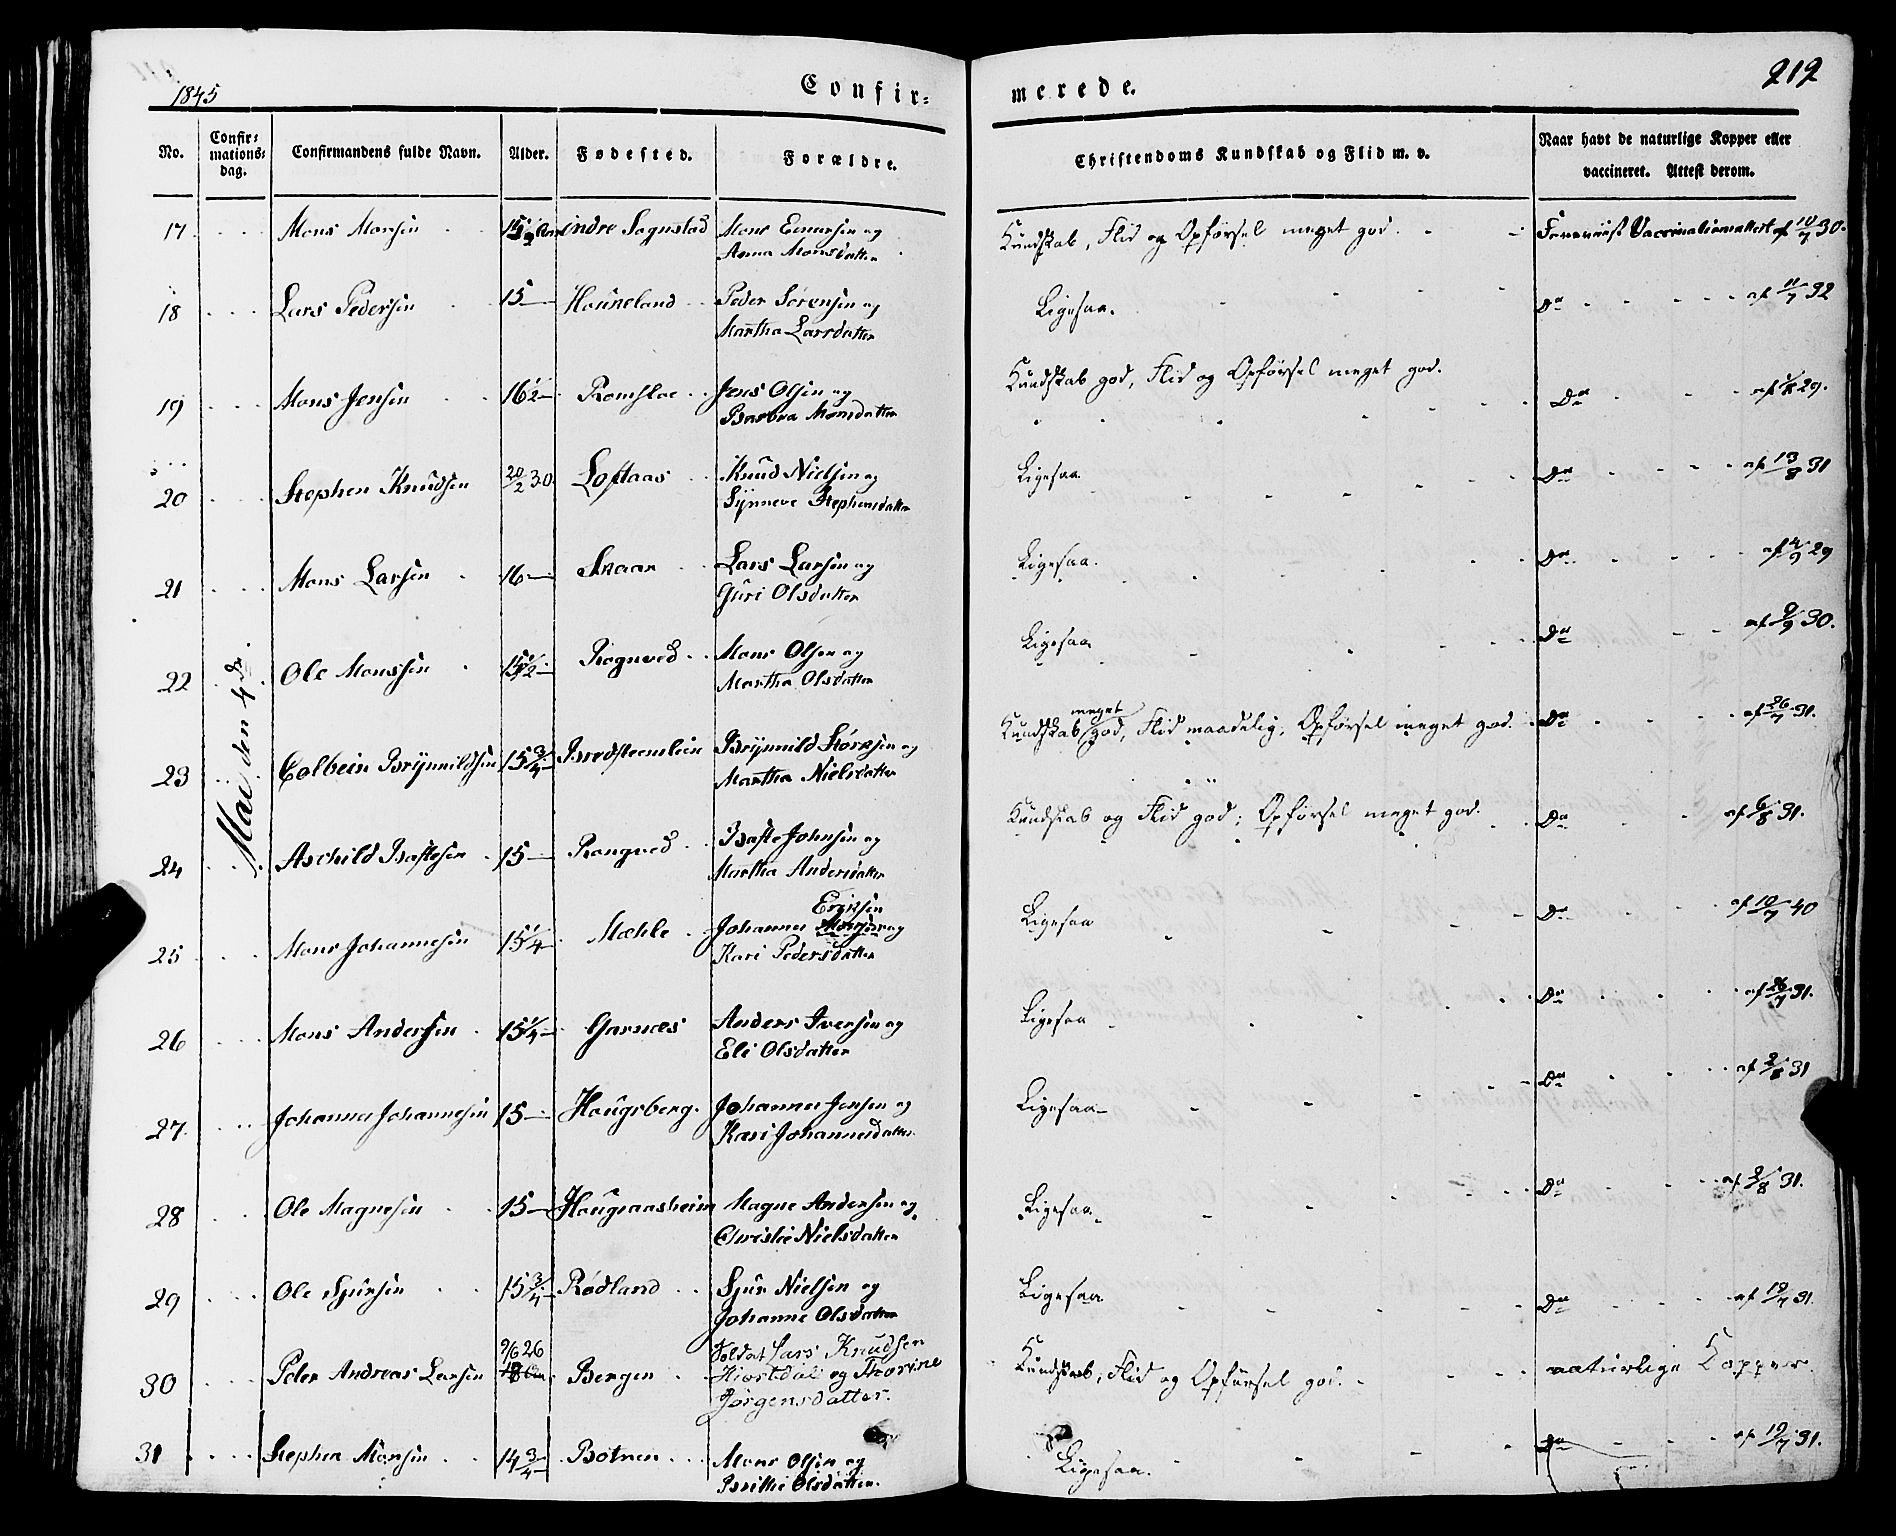 1845
Confir=
merede.
212
No.
Confir=
mations=
dag.
Confirmandens fulde Navn.
Alder.
Fødested.
Forældre.
Christendoms Kundskab og Flid m. v.
Naar havt de naturlige Kopper eller
vaccineret. Attest derom.
Mai den 4de
17 Mons Monsen 15 1/2 Aar indre Sognstad Mons Einarsen og
Anna Monsdatter
Kundskab, Flid og Opførsel meget god. Foreviist Vaccinationattest af 10/7 30.
18 Lars Pedersen 15 Hauneland Peder Sørensen og
Martha Larsdatter
Ligesaa. Do af 11/7 32
19 Mons Jensen 16 1/2 Romsloe Jens Olsen og
Barbra Monsdatter
Kundskab god, Flid og Opførsel meget god. Do 29.
20 Stephen Knudsen 20/2 30 Loftaas Knud Nielsen og
Synneve Stephensdatter
Ligesaa Do af 13/8 31
21 Mons Larsen 16 Skaar Lars Larsen og
Guri Olsdatter
Ligesaa. Do af 4/9 29
22 Ole Monssen 15 1/2 Rognved Mons Olsen og
Martha Olsdatter
Ligesaa Do af 9/9 30.
23 Colbein Brynnildsen 15 3/4 Bredsteenlien Brynnild Størksen og
Martha Nielsdatter
Kundskab meget god, Flid maadelig, Opførsel meget god. Do af 26/7 31.
24 Aschild Baftesen 15 Rongved Bafte Johnsen og
Martha Andersdatter
Kundskab og Flid god; Opførsel meget god. Do af 6/8 31.
25 Mons Johannesen 15 1/4 Mæhle Johannes Eriksen og
Kari Pedersdatter
Ligesaa Do af 10/7 40
26 Mons Andersen 15 1/4 Garnæs Anders Iversen og
Eli Olsdatter
Ligesaa Do af 26/7 31.
27 Johannes Johannesen 15 Haugsberg. Johannes Jensen og
Kari Johannesdatter
Ligesaa Do af 2/8 31
28 Ole Magnesen 15 Haugaasheim Magne Andersen og
Christie Nielsdatter
Ligesaa Do af 2/8 31.
29 Ole Sjursen 15 3/4 Rødland Sjur Nielsen og
Johanne Olsdatter
Ligesaa Do af 19/7 31.
30 Peder Andreas Larsen 9/6 26 Bergen Soldat Lars Knudsen
Hiortdal og Thorine
Jørgensdatter.
Kundskab, Flid og Opførsel god. naturlige Kopper.
31 Stephen Monsen 14 3/4 Botnen Mons Olsen og
Brithe Olsdatter.
Ligesaa. Do af 19/7 31.